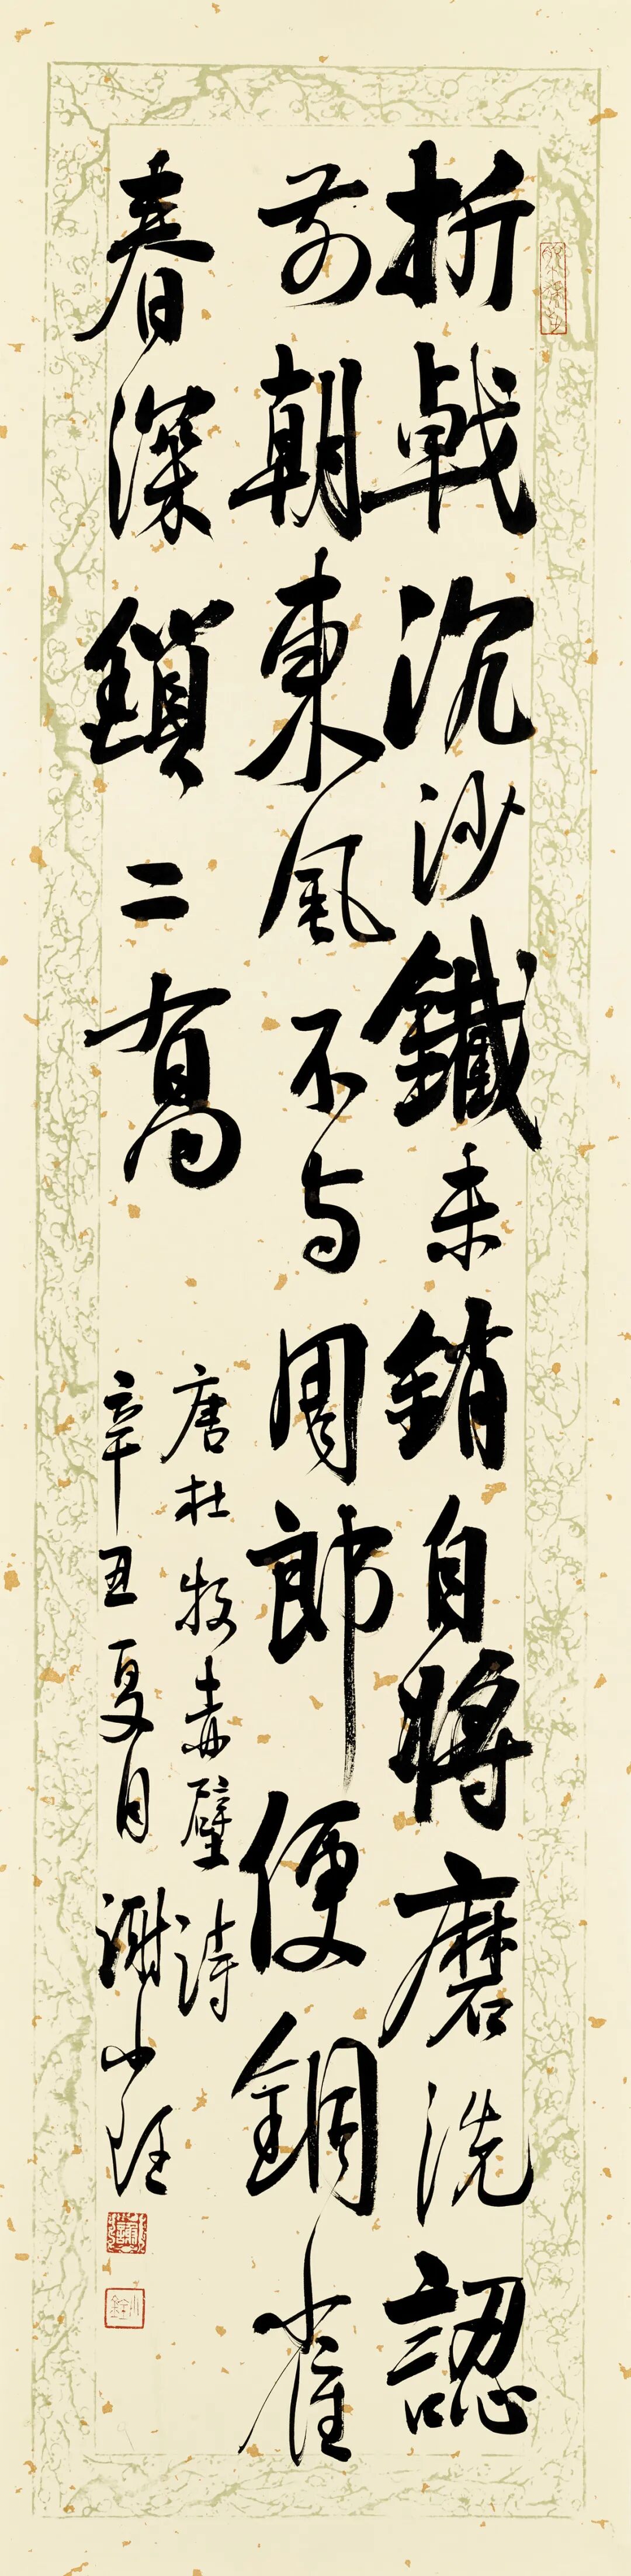 折戟沉沙鐵未銷自將磨洗認
前朝東風不与周郎便銅雀
春深鎖二喬
唐杜牧赤壁詩
辛丑夏月謝小銓